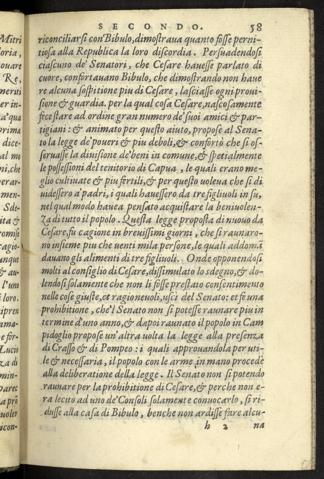 SECONDO. 58
riconciliarsi con Bibulo, dimostraua quanto fosse perni-
tiosa alla Republica la loro discordia. Persuadendosi
ciascuno de' Senatori, che Cesare hauesse parlato di
cuore, confortauano Bibulo, che dimostrando non haue
re alcuna sospitione piu di Cesare, lasciasse ogni proui-
sione & guardia. per la qual cosa Cesare, nascosamente
fece stare ad ordine gran numero de' suoi amici & par-
tigiani: & animato per questo aiuto, propose al Sena-
to la legge de' poueri & piu deboli, & confortò che si os-
seruasse la diuisione de' beni in comune, & spetialmente
le possessioni del tenitorio di Capua, le quali erano me-
glio cultiuate & piu fertili, & per questo uoleua che si di
uidessero a' padri, i quali hauessero da tre figliuoli in su,
nel qual modo hauea pensato acquistare la beniuolen-
za di tutto il popolo. Questa legge proposta di nuouo da
Cesare, fu cagione in breuissimi giorni, che si raunaro-
no insieme piu che uenti mila persone, le quali addomā
dauano gli alimenti di tre figliuoli. Onde opponendosi
molti al consiglio di Cesare, dissimulato lo sdegno, & do-
lendosi solamente che non li fosse prestato consentimento
nelle cose giuste, et ragioneuoli, uscì del Senato: et fè una
prohibitione, che'l Senato non si potesse raunare piu in
termine d'uno anno, & dapoi raunato il popolo in Cam
pidoglio propose un'altra uolta la legge alla presenza
di Crasso & di Pompeo: i quali approuandola per uti-
le & necessaria, il popolo con le arme in mano procedè
alla deliberatione della legge. Il Senato non si potendo
raunare per la prohibitione di Cesare, & perche non e-
ra lecito ad uno de' Consoli solamente conuocarlo, si ri-
dusse alla casa di Bibulo, benche non ardisse fare alcu-
h 2 na